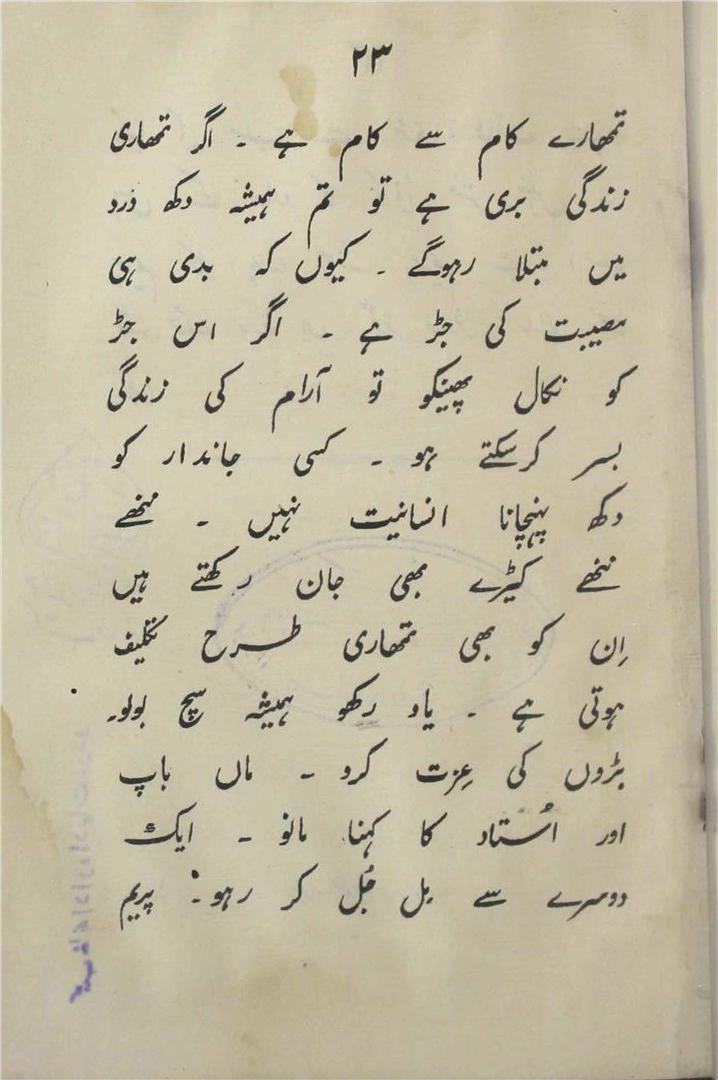 ۲۳
تمھارے کام سے کام ہے ۔ اگر تمھاری
زندگی بری ہے تو تم ہمیشہ دکھ درد
میں مبتلا رہوگے ۔ کیوں کہ بدی ہی
مصیبت کی جڑ ہے ۔ اگر اس جڑ
کو نکال پھینکو تو آرام کی زندگی
بسر کرسکتے ہو ۔ کسی جاندار کو
دکھ پہنچانا انسانیت نہیں ۔ ننھے
ننھے کیڑے بھی جان رکھتے ہیں
اِن کو بھی تمھاری طرح تکلیف
ہوتی ہے ۔ یاد رکھو ہمیشہ سچ بولو۔
بڑوں کی عِزت کرو ۔ ماں باپ
اور اُستاد کا کہنا مانو ۔ ایک
دوسرے سے مِل جُل کر رہو۔ پریم